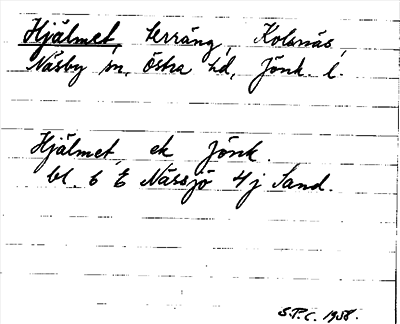 Hjälmet, terräng, Kolsnäs,
Näsby sn, Östra hd, Jönk. l.
Hjälmet ek Jönk.
bl. 6 E Nässjö 4j Sand.
S.P.C. 1958.